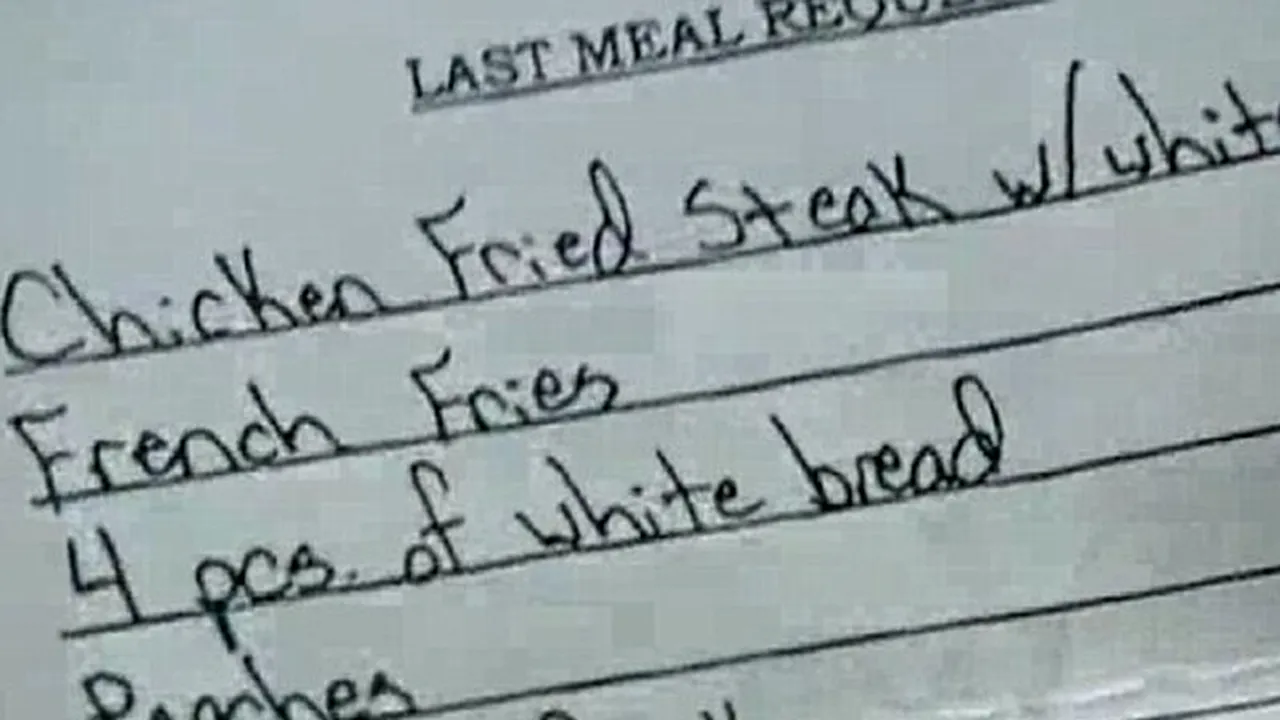 LAST MEAL
Chicken Fried Steak w/
French Fries
4 pcs. of white bread
Peaches